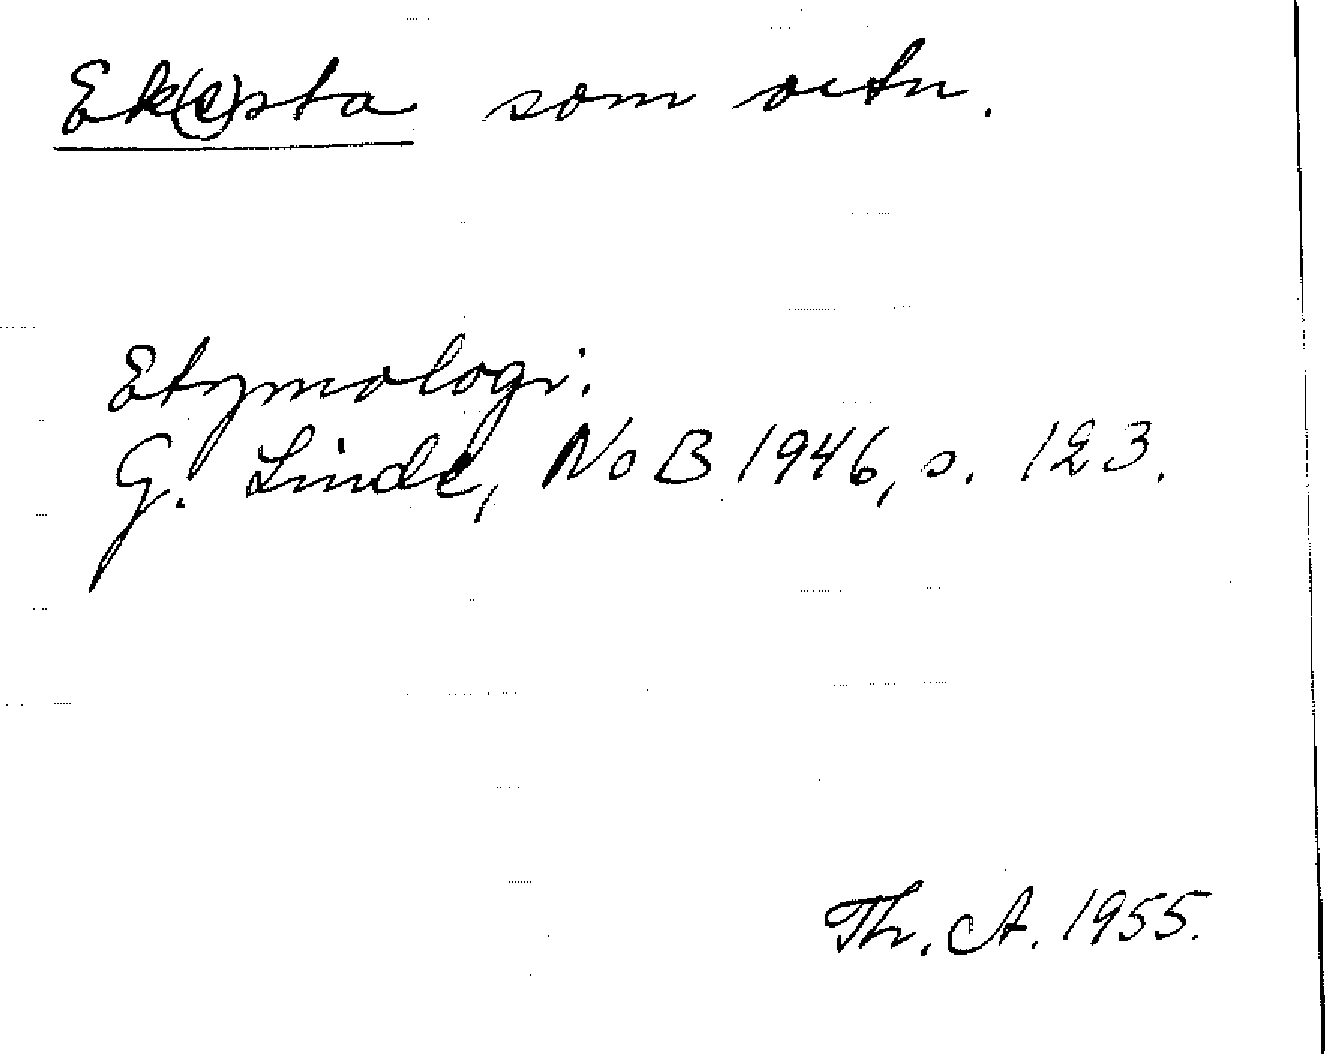 Ek(e)sta som ortn.
Etymologi:
G. Linde, NoB 1946, s. 123.
Th. A. 1955.